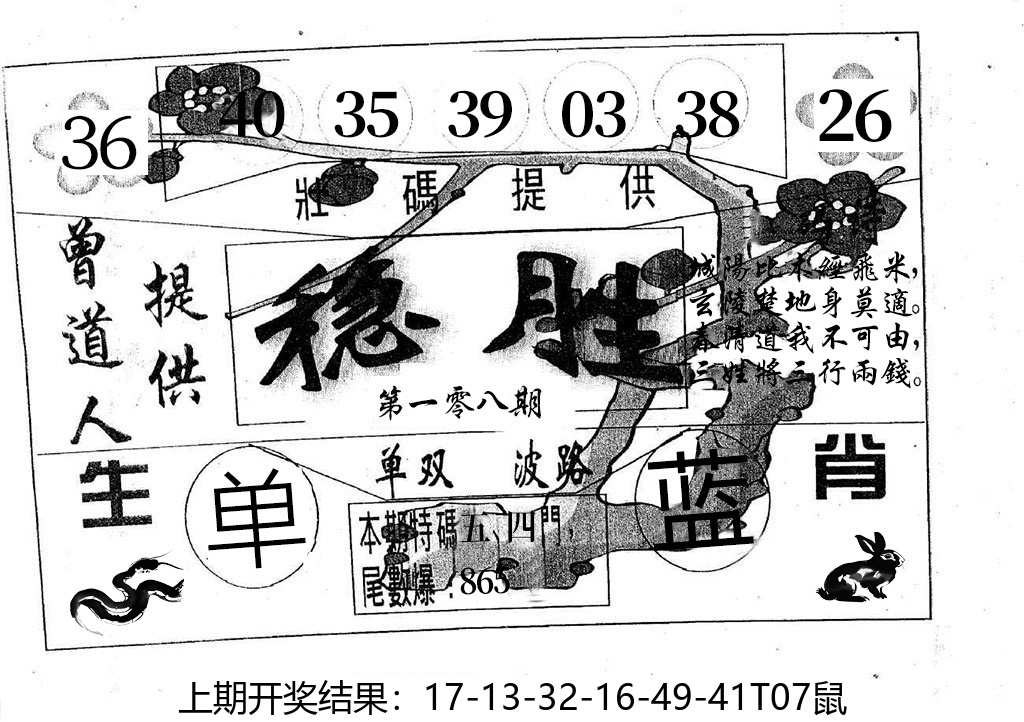 36 40 35 39 03 38 26
壯碼提供
曾道人
提供
穩胜
第一零八期
城陽比木經飛米，
玄陵楚地身莫適。
春清道我不可由，
三姓將三行兩錢。
生肖
单双 波路
单
蓝
本期特碼五、四門，
尾數爆：865
上期开奖结果：17-13-32-16-49-41T07鼠